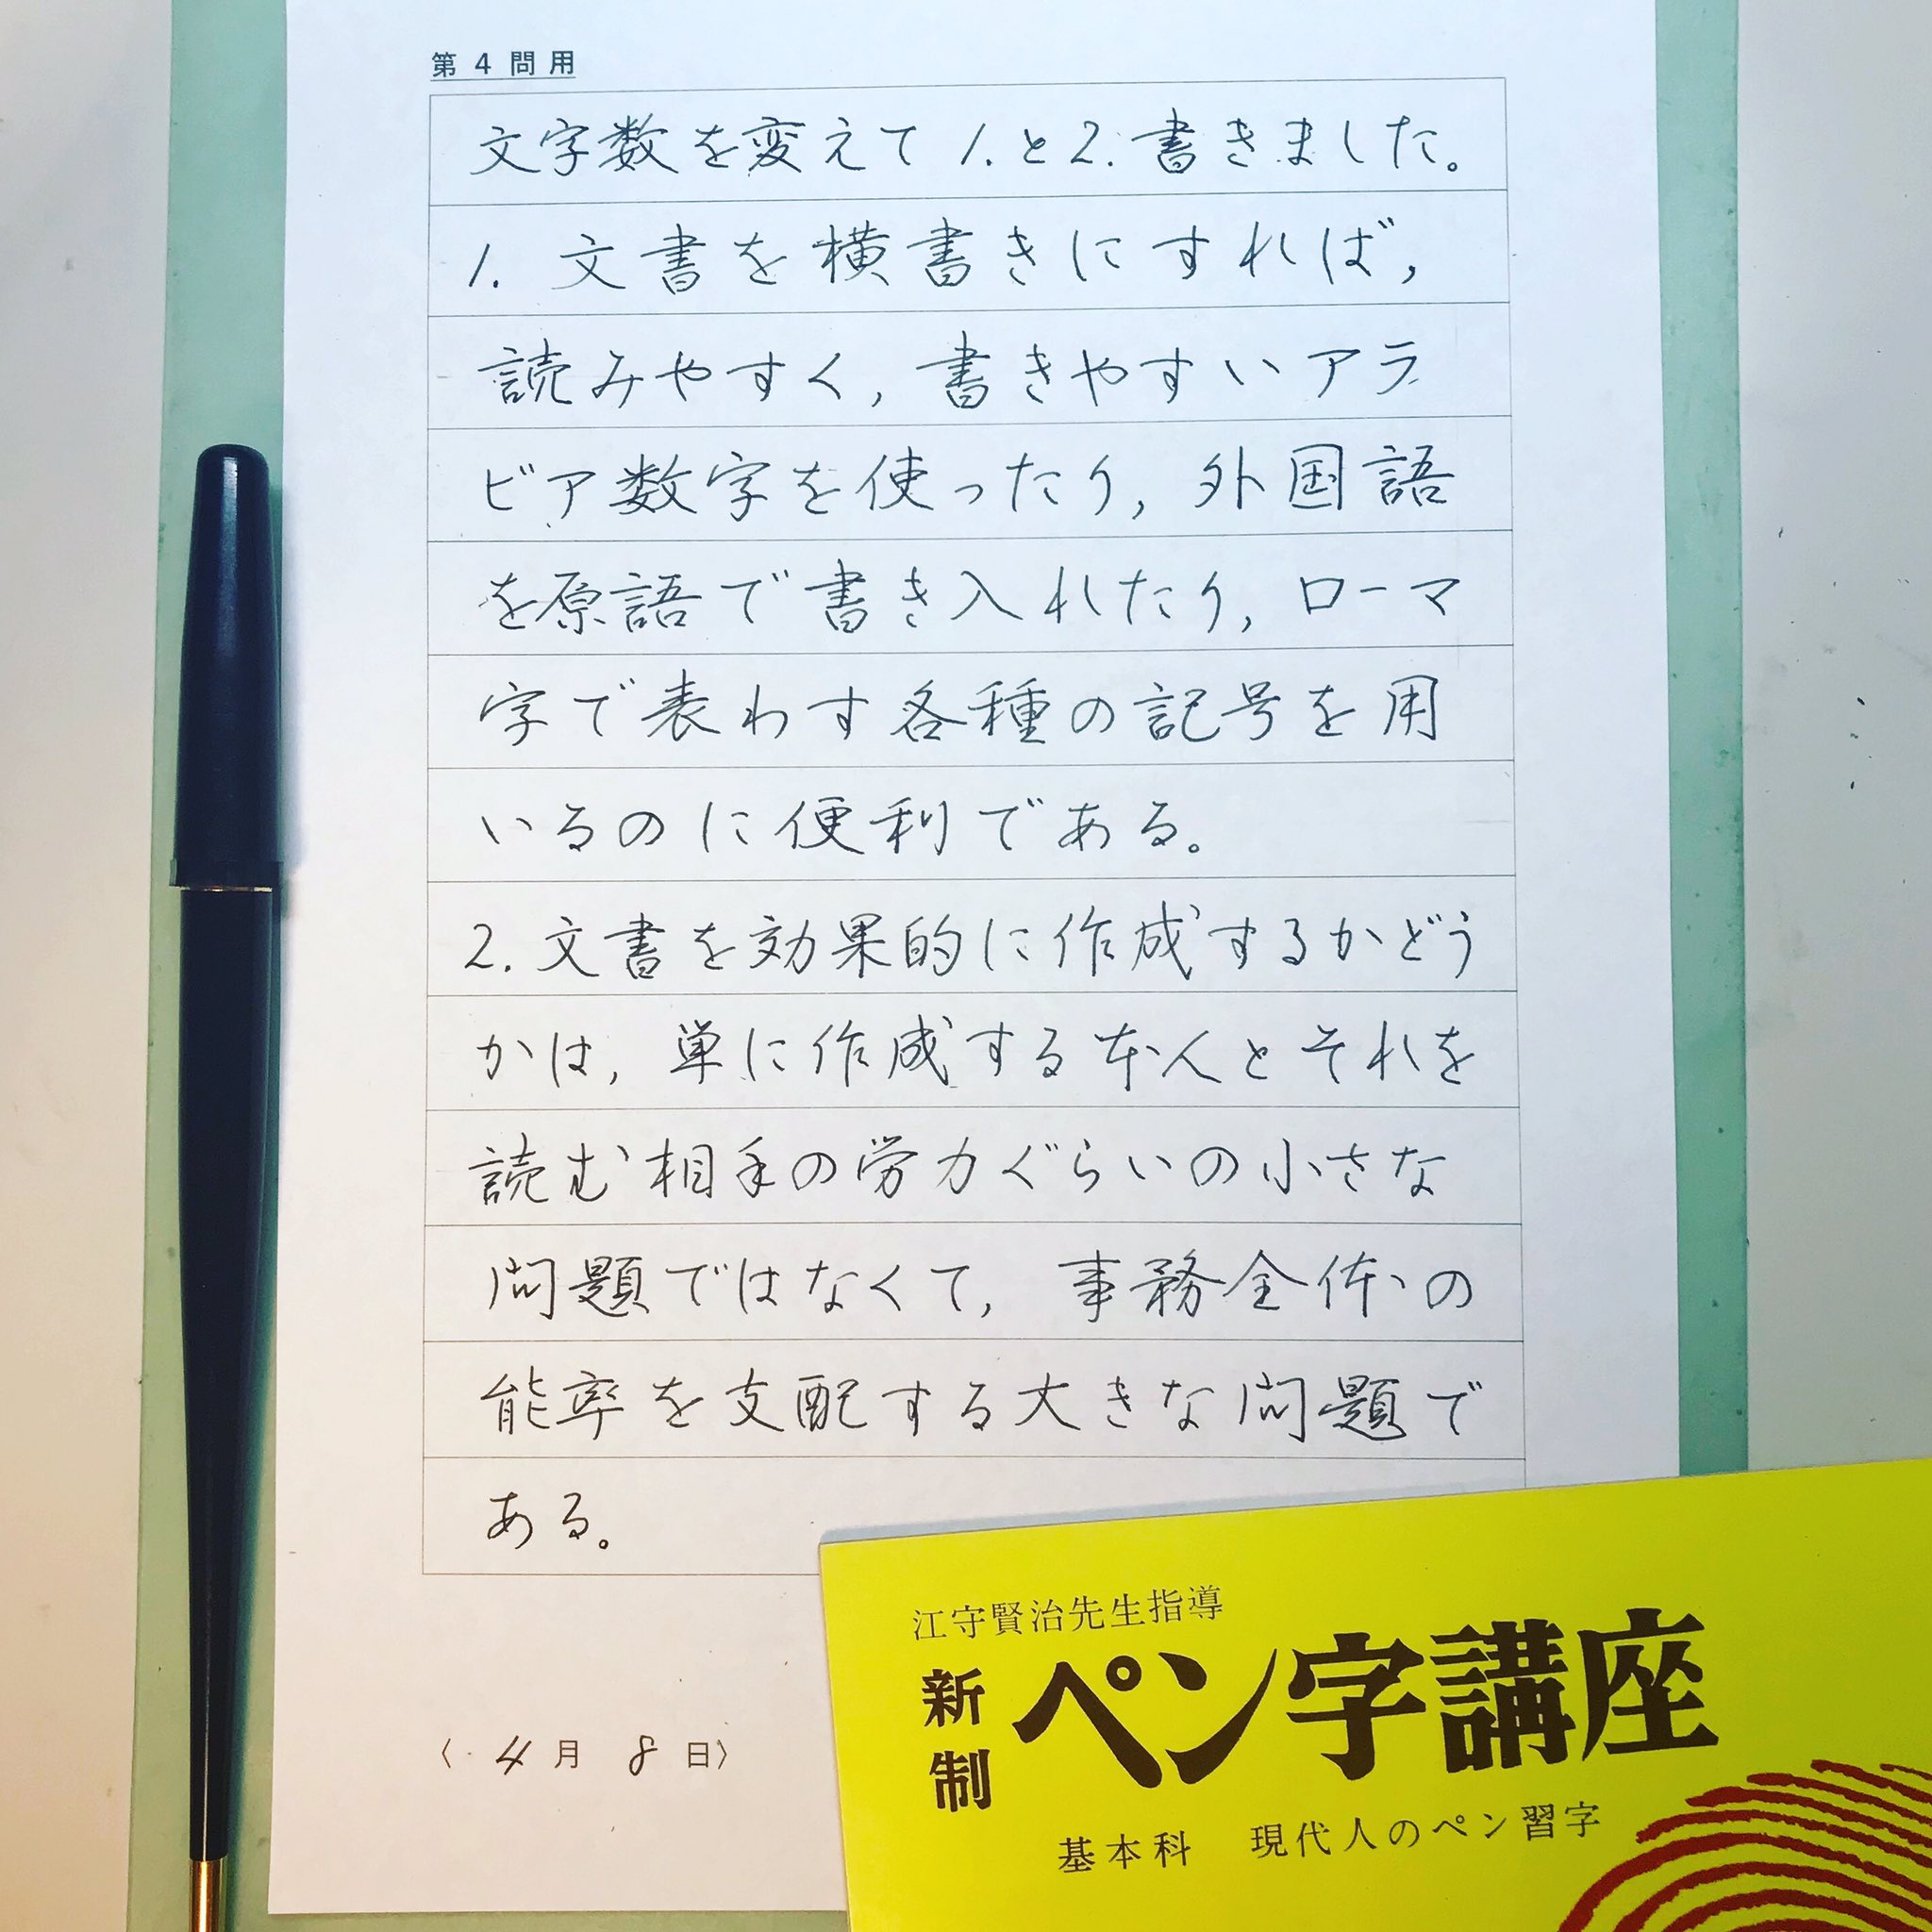 第4問用
文字数を変えて1.と2.書きました。
1. 文書を横書きにすれば,
読みやすく,書きやすいアラ
ビア数字を使ったり,外国語
を原語で書き入れたり,ローマ
字で表わす各種の記号を用
いるのに便利である。
2. 文書を効果的に作成するかどう
かは,単に作成する本人とそれを
読む相手の労力ぐらいの小さな
問題ではなくて,事務全体の
能率を支配する大きな問題で
ある。
〈4月8日〉
江守賢治先生指導
新制 ペン字講座
基本科 現代人のペン習字